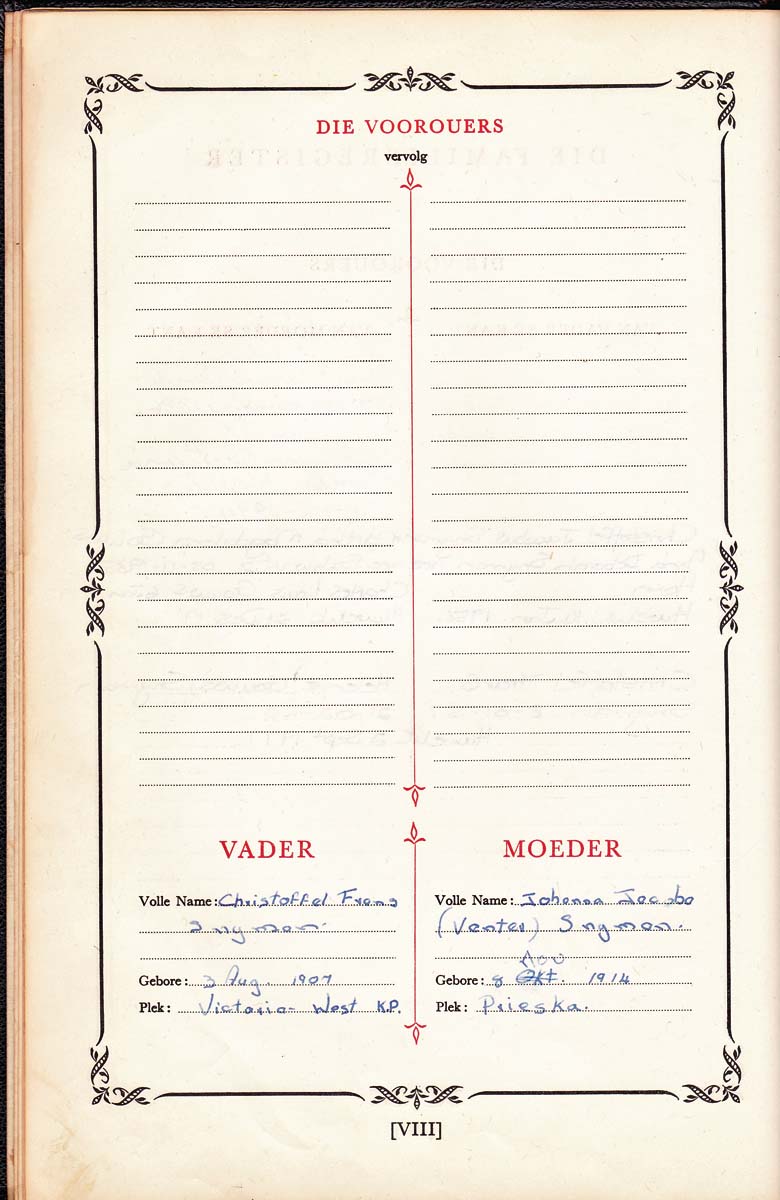 DIE VOOROUERS
vervolg
VADER
Volle Name: Christoffel Frans
Snyman.
Gebore: 3 Aug. 1907
Plek: Victoria-West K.P.
MOEDER
Volle Name: Johanna Jacoba
(Venter) Snyman.
Nov
Gebore: 8 Okt. 1914
Plek: Prieska.
[VIII]